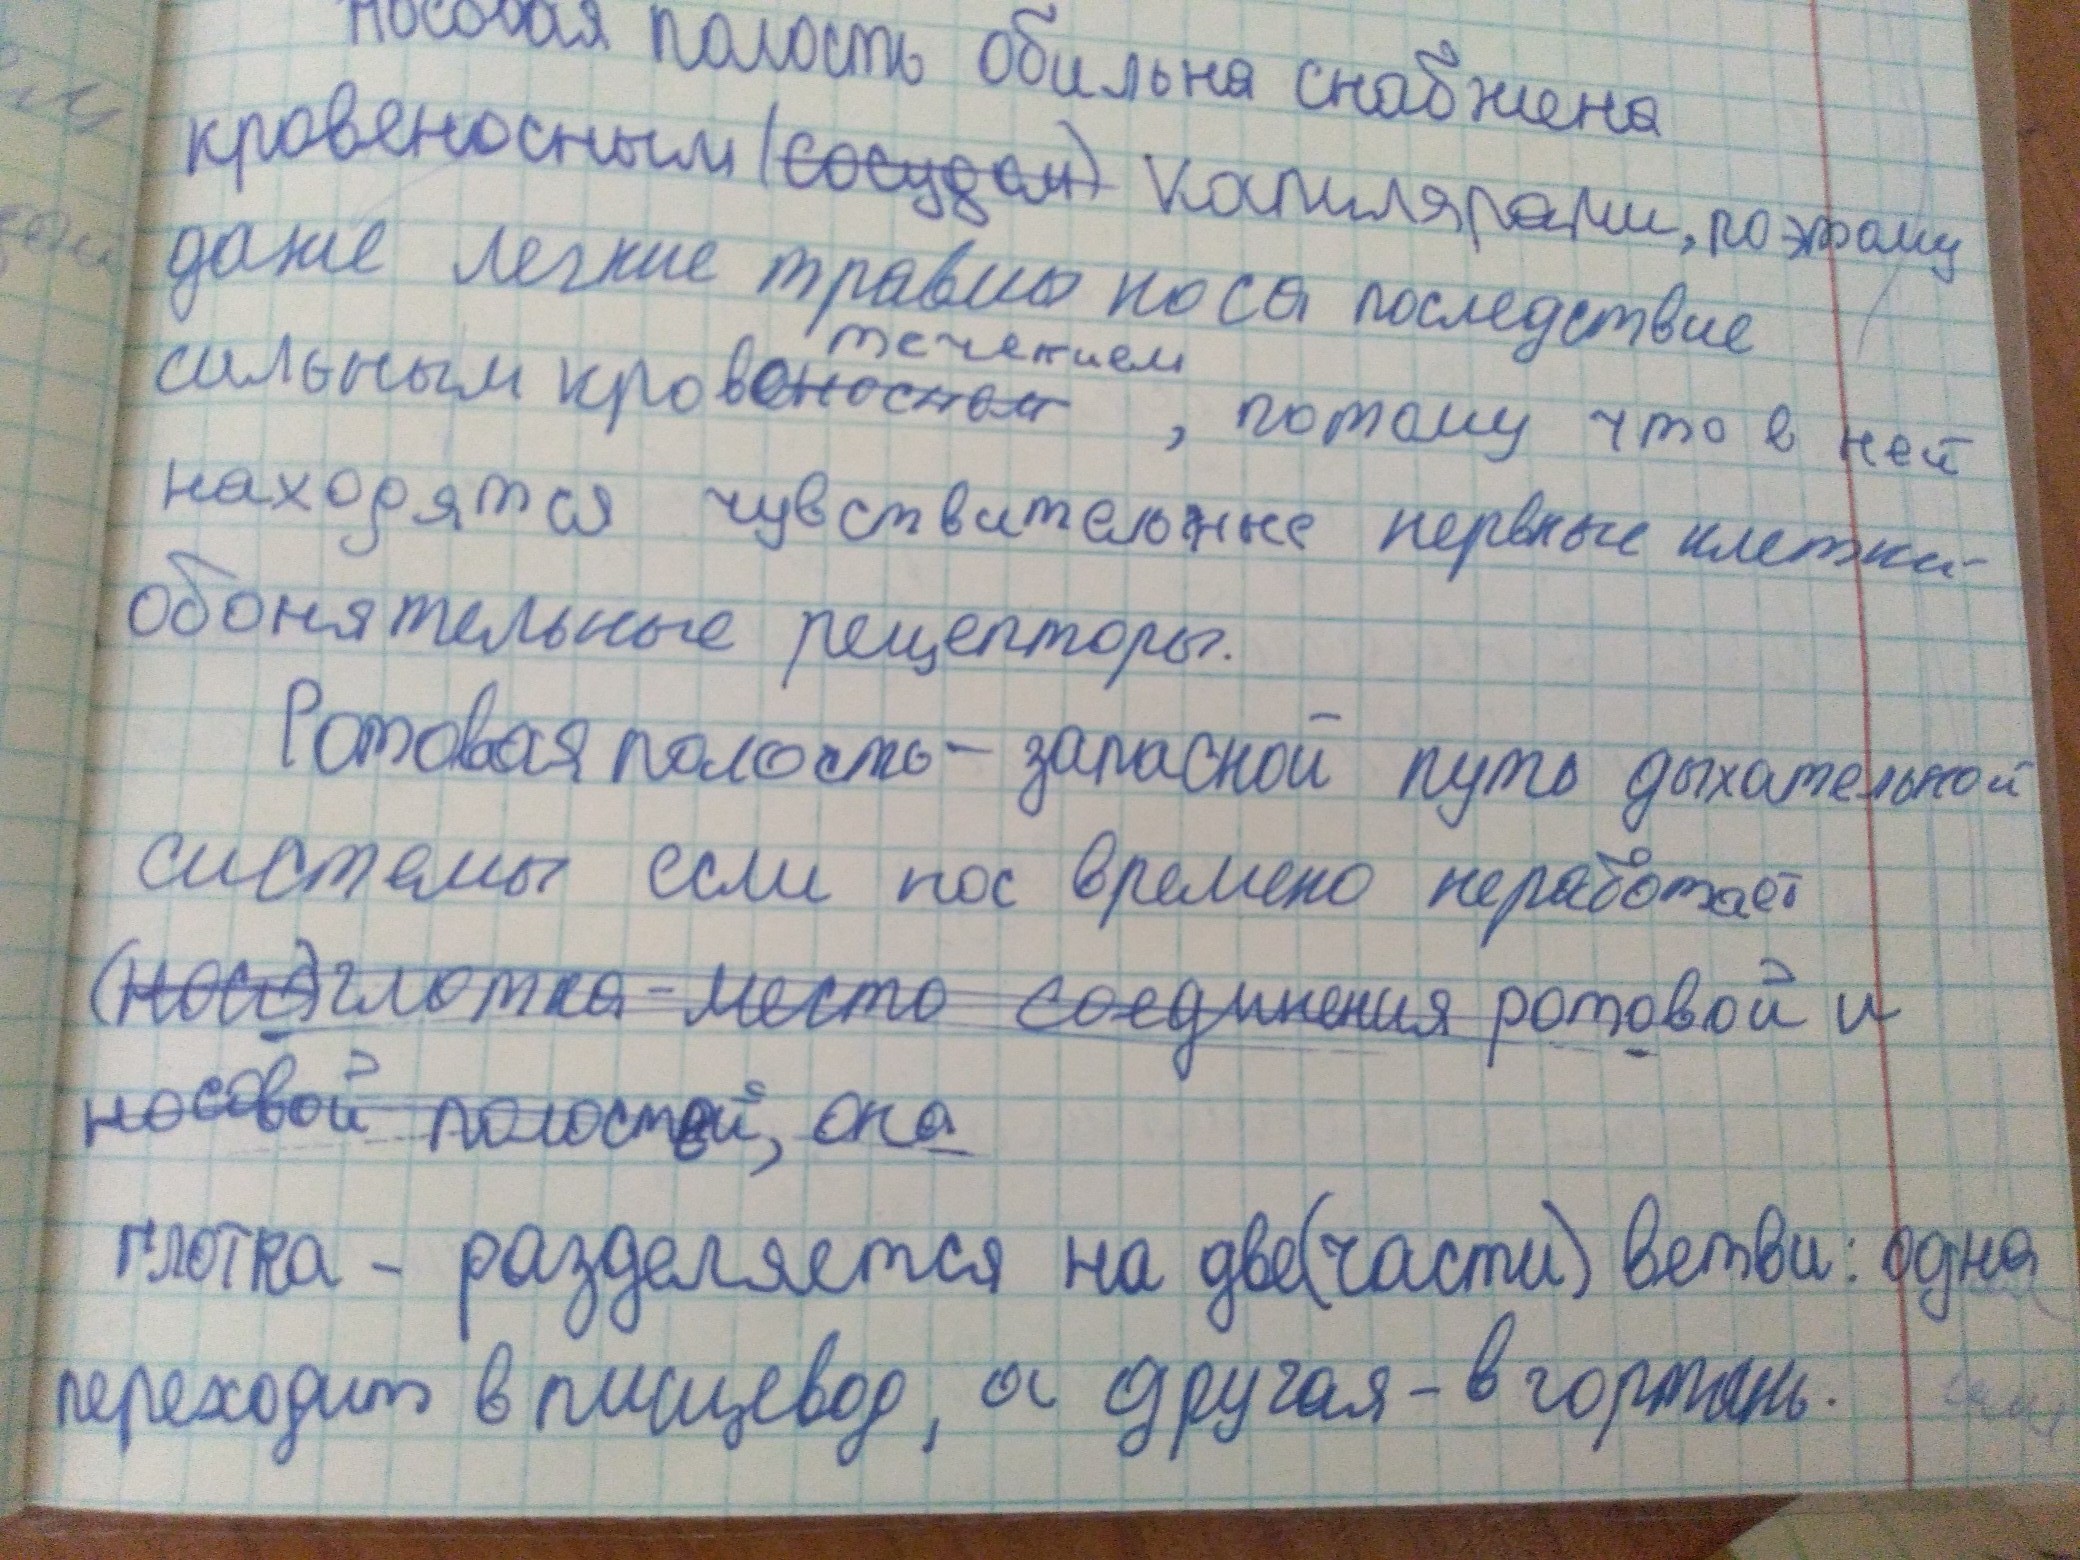 Носовая полость обильна снабжена
кровеносным (сосудам) капилярами, поэтому
даже легкие травмы носа последствие
течением
сильным кровеносным, потому что в ней
находятся чувствительные нервные клетки-
обонятельные рецепторы.
Ротовая полость - запасной путь дыхательной
системы если нос времено неработает
(нос) глотка - место соединения ротовой и
носовой полостей, она
глотка - разделяется на две (части) ветви: одна
переходит в пищевод, а другая - в гортань.